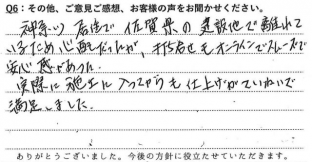 Q6：その他、ご意見ご感想、お客様の声をお聞かせください。
神奈川居住で佐賀県の建設地で離れて
いるため心配だったが、打ち合せもオンラインでスムーズで
安心感があった。
実際に施工に入ってからも仕上げがていねいで
満足しました。
ありがとうございました。今後の方針に役立たせていただきます。